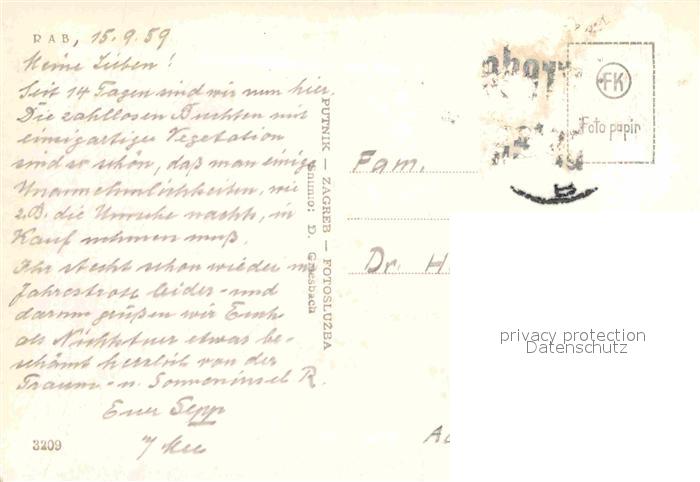 RAB, 15.9.59
Meine Lieben!
Seit 14 Tagen sind wir nun hier.
Die zahllosen Buchten mit
einzigartiger Vegetation
sind so schön, daß man einige
Unannehmlichkeiten, wie
z.B. die Unruhe nachts, in
Kauf nehmen muß.
Ihr steckt schon wieder im
leider - und
darum grüßen wir Euch
als etwas be-
schämt herzlich von der
Traum- u. Sonneninsel R.
Euer Sepp
3209
PUTNIK — ZAGREB — FOTOSLUŽBA
Snimio: D. Griesbach
FK
Foto papir
Fam.
Dr. H
privacy protection
Datenschutz